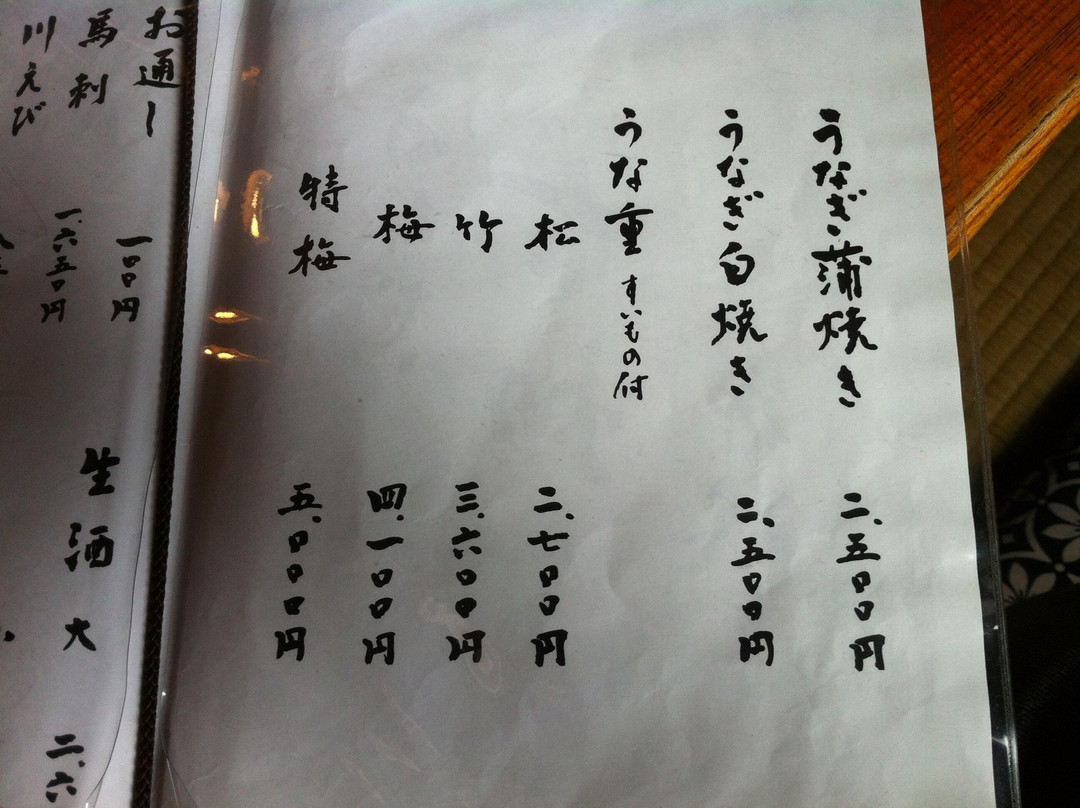 うなぎ蒲焼き 二、五〇〇円
うなぎ白焼き 二、五〇〇円
うな重 すいもの付
松 二、七〇〇円
竹 三、六〇〇円
梅 四、一〇〇円
特梅 五、〇〇〇円
お通し 一〇〇円
馬刺 一、六五〇円
川えび
生酒 大 二、六